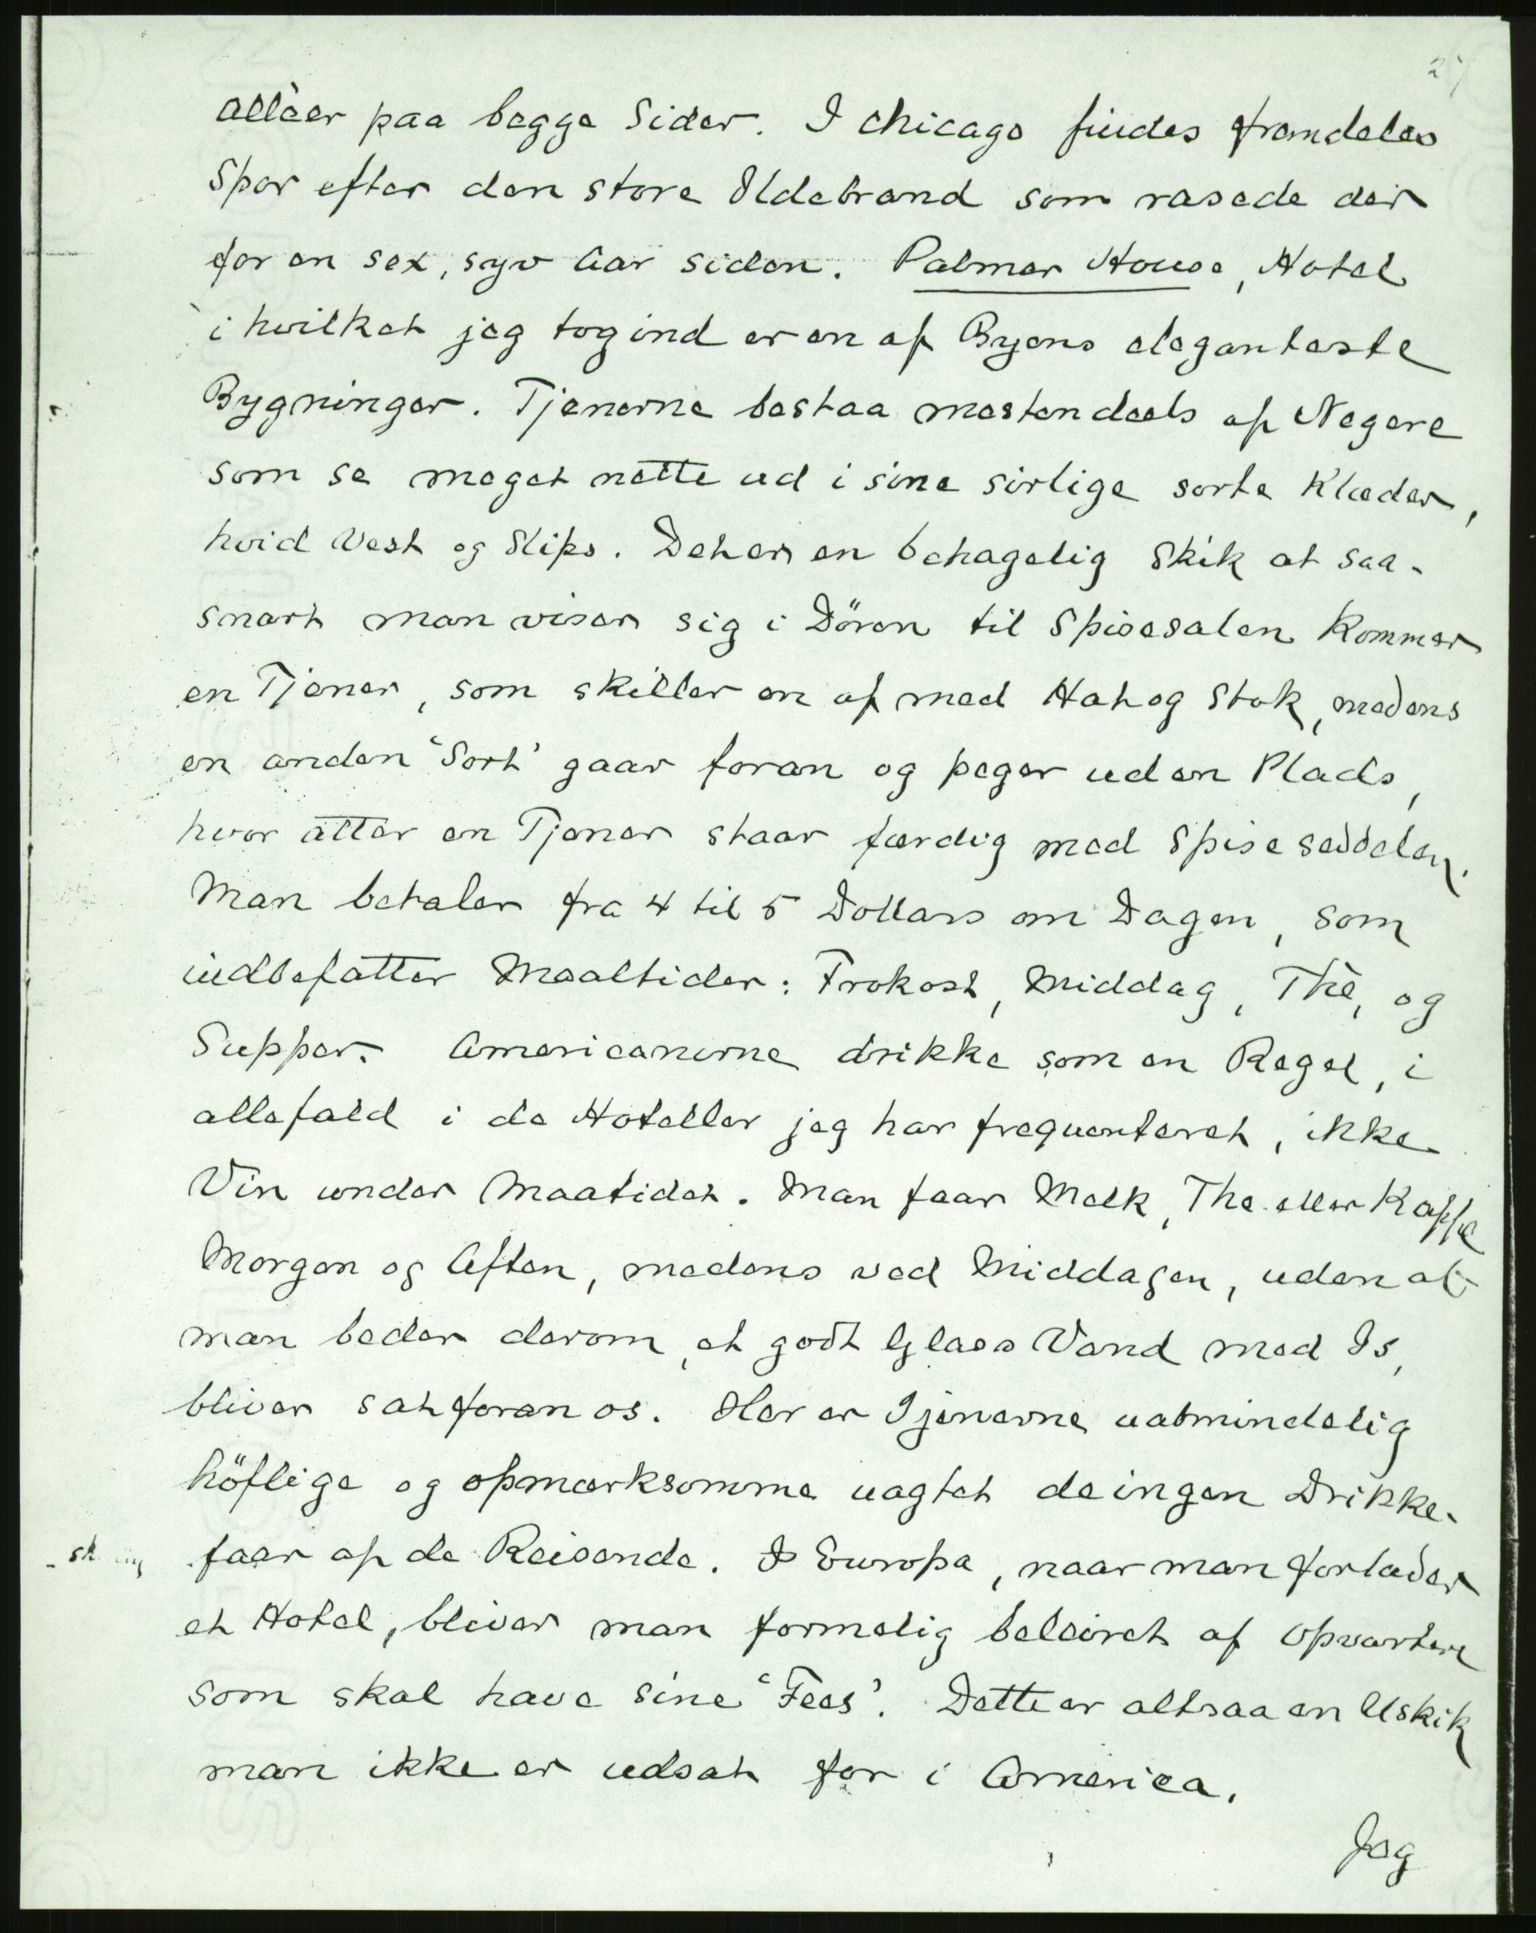 27
Alléer paa begge Sider. I Chicago findes fremdeles
Spor efter den store Ildebrand som rasede der
for en sex, syv Aar siden. Palmer House, Hotel
i hvilket jeg tog ind er en af Byens eleganteste
Bygninger. Tjenerne bestaa mestendeels af Negere
som se meget nette ud i sine sirlige sorte Klæder,
hvid Vest og Slips. Det er en behagelig Skik at saa-
snart man viser sig i Dören til Spisesalen Kommer
en Tjener, som skiller en af med Hat og Stok, medens
en anden 'Sort' gaar foran og peger ud en Plads,
hvor atter en Tjener staar færdig med Spiseseddelen.
Man betaler fra 4 til 5 Dollars om Dagen, som
indbefatter Maaltider: Frokost, Middag, Thè, og
Supper. Americanerne drikke som en Regel, i
allefald i de Hoteller jeg har frequenteret, ikke
Vin under Maatidet. Man faar Melk, The eller Kaffe
Morgen og Aften, medens ved Middagen, uden at
man beder derom, et godt Glass Vand med Is,
bliver sat foran os. Her er Tjenerne ualmindelig
höflige og opmærksomme uagtet de ingen Drikke-
sk
faar af de Reisende. I Europa, naar man forlader
et Hotel, bliver man formelig beleiret af Opvartere
som skal have sine 'Fees'. Dette er altsaa en Uskik
man ikke er udsat for i America.
Jeg